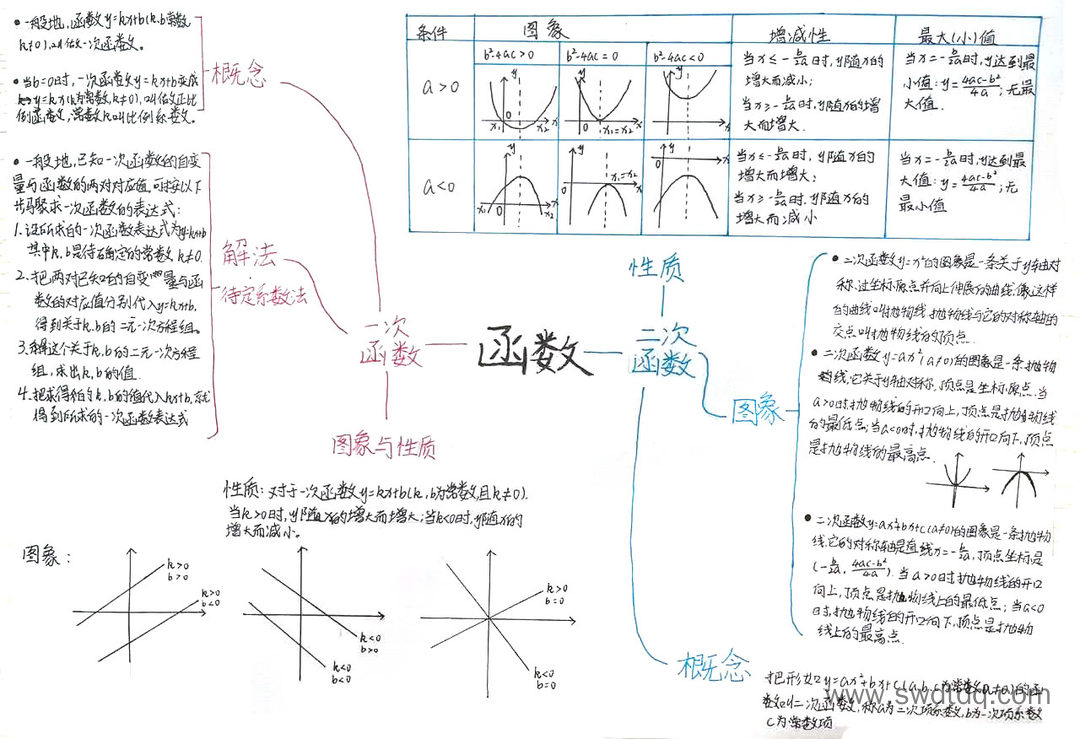 • 一般地,函数y=kx+b(k.b常数
k≠0),叫做一次函数。
• 当b=0时,一次函数y=kx+b变成
y=kx(k为常数,k≠0),叫做正比
例函数,常数k叫比例系数。
概念
• 一般地,已知一次函数的自变
量与函数的两对对应值,可按以下
步骤求一次函数的表达式:
1.设所求的一次函数表达式为y=kx+b
其中k.b是待确定的常数,k≠0.
2.把两对已知的自变量与函
数的对应值分别代入y=kx+b,
得到关于k.b的二元一次方程组。
3.解这个关于k.b的二元一次方程
组,求出k,b的值.
4.把求得的k.b的值代入y=kx+b,就
得到所求的一次函数表达式
解法
·待定系数法
一次
函数
图象与性质
性质:对于一次函数y=kx+b(k,b为常数,且k≠0).
当k>0时,y随x的增大而增大;当k<0时,y随x的
增大而减小。
图象:
k>0
b>0
k>0
b<0
k<0
b>0
k<0
b<0
k>0
b=0
k<0
b=0
函数
条件 图象 增减性 最大(小)值
b²-4ac>0 b²-4ac=0 b²-4ac<0
a>0
y
x₁ 0 x₂ x
y
0 x₁=x₂ x
y
0 x
当x≤-b/2a时,y随x的
增大而减小;
当x≥-b/2a时,y随x的增
大而增大.
当x=-b/2a时,y达到最
小值:y=(4ac-b²)/4a;无最
大值.
a<0
y
x₁ 0 x₂ x
y
0 x₁=x₂ x
y
0 x
当x≤-b/2a时,y随x的
增大而增大;
当x≥-b/2a时,y随x的
增大而减小
当x=-b/2a时,y达到最
大值:y=(4ac-b²)/4a;无
最小值
性质
二次
函数
图象
• 二次函数y=x²的图象是一条关于y轴对
称.过坐标原点并向上伸展的曲线,像这样
的曲线叫抛物线.抛物线与它的对称轴的
交点叫抛物线的顶点.
• 二次函数y=ax²(a≠0)的图象是一条抛物
线,它关于y轴对称,顶点是坐标原点.当
a>0时,抛物线的开口向上,顶点是抛物线
的最低点;当a<0时,抛物线的开口向下,顶点
是抛物线的最高点.
• 二次函数y=ax²+bx+c(a≠0)的图象是一条抛物
线,它的对称轴是直线x=-b/2a,顶点坐标是
(-b/2a,(4ac-b²)/4a).当a>0时,抛物线的开口
向上,顶点是抛物线上的最低点;当a<0
时,抛物线的开口向下,顶点是抛物
线上的最高点.
概念
把形如y=ax²+bx+c(a.b.c为常数,a≠0)的函
数叫二次函数,称a为二次项系数,b为一次项系数
c为常数项
www.swdtdq.com